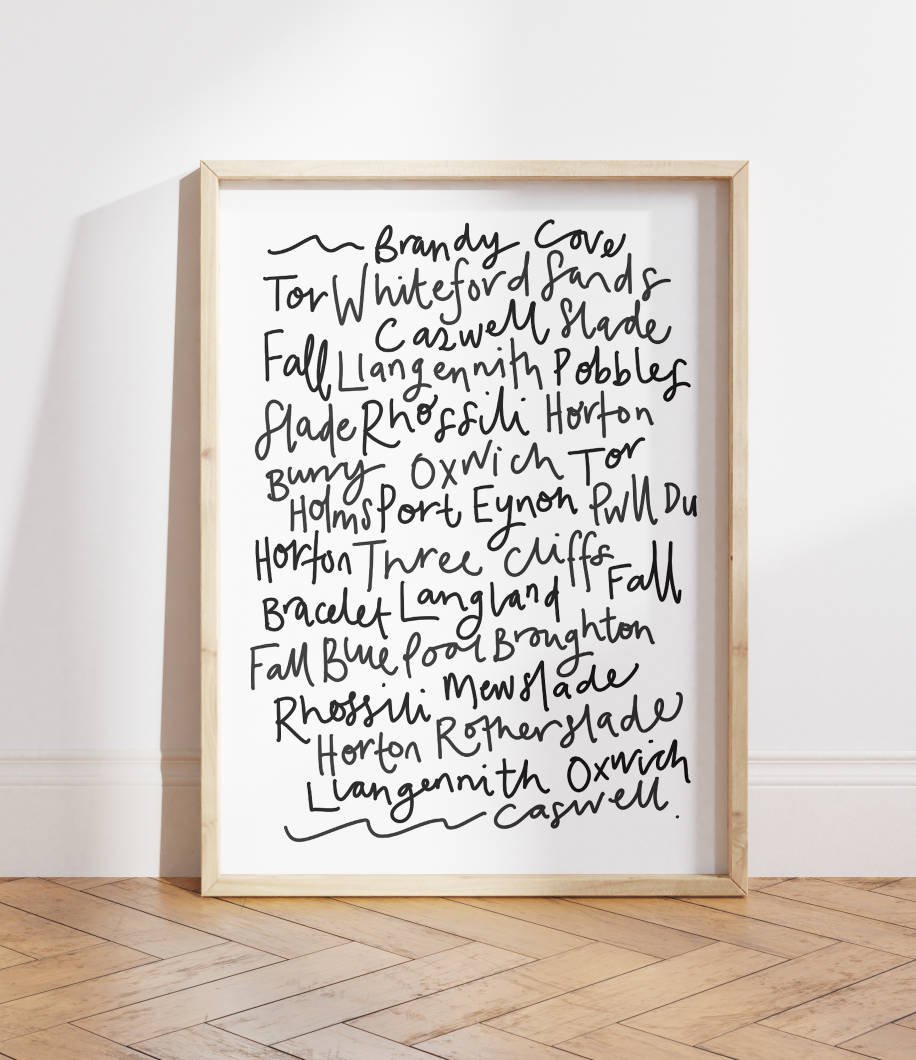 Brandy Cove
Tor Whiteford Sands
Caswell Slade
Fall Llangennith Pobbles
Slade Rhossili Horton
Burry Oxwich Tor
Holms Port Eynon Pwll Du
Horton Three Cliffs
Fall
Bracelet Langland
Fall Blue Pool Broughton
Rhossili Mewslade
Horton Rotherslade
Llangennith Oxwich
Caswell.